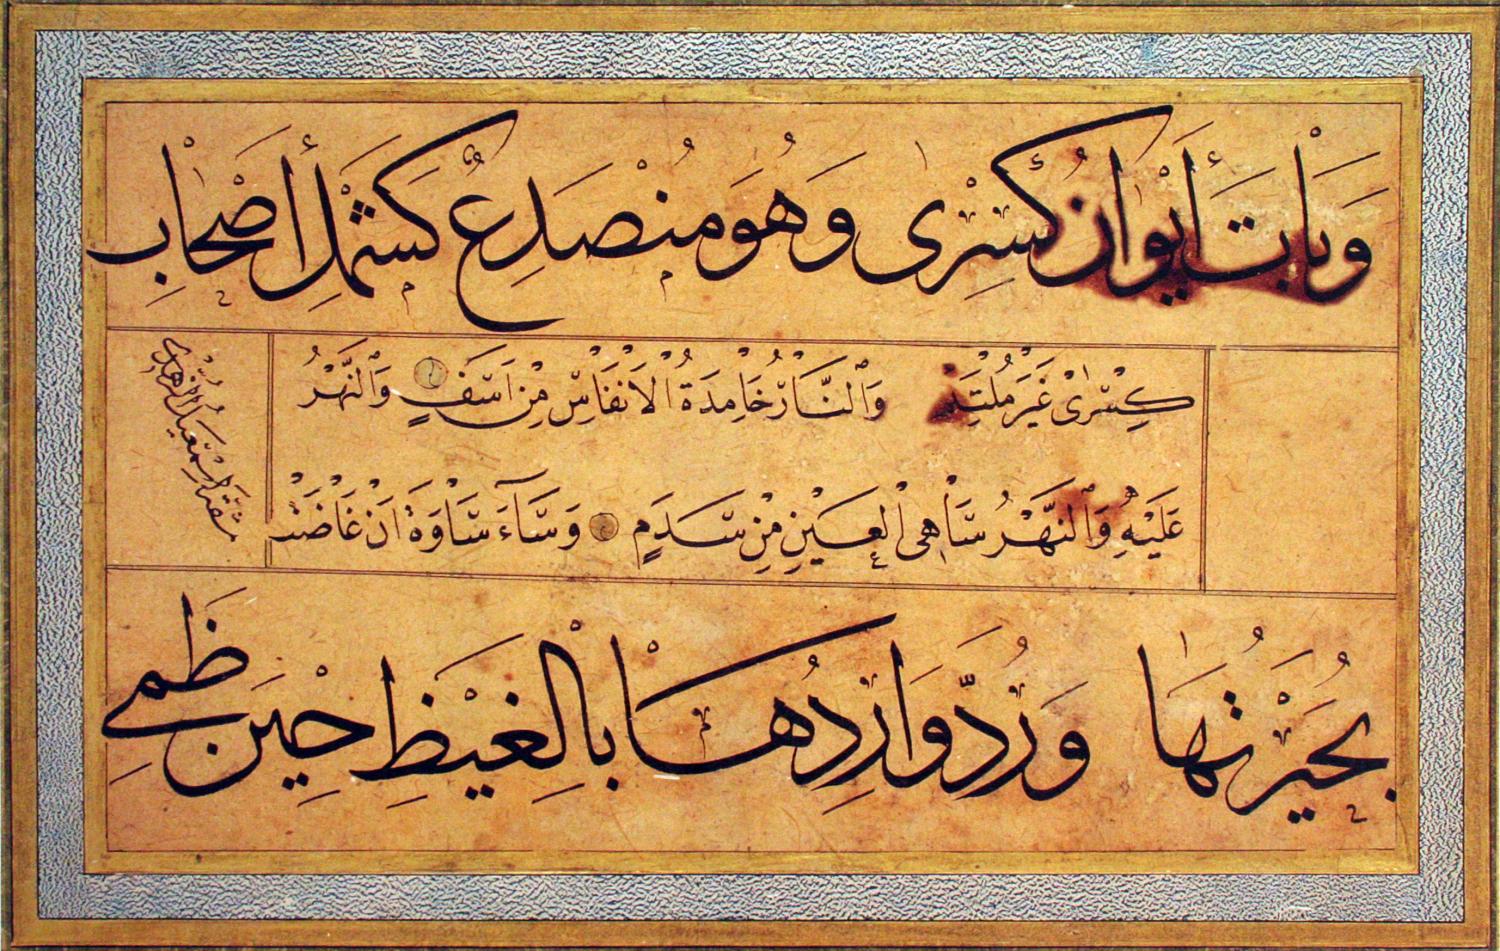 وَبَاتَ أَيْوَانُ كِسْرٰى وَهُوَ مُنْصَدِعٌ كَشَمْلِ أَصْحَابِ
كِسْرٰى غَيْرَ مُلْتَئِمِ وَالنَّارُ خَامِدَةُ الْاَنْفَاسِ مِنْ اَسَفٍ وَالنَّهْرُ
عَلَيْهِ وَالنَّهْرُ سَاهِى الْعَيْنِ مِنْ سَدَمٍ وَسَآءَ سَاوَةَ اَنْ غَاضَتْ
بُحَيْرَتُهَا وَرُدَّ وَارِدُهَا بِالْغَيْظِ حِيْنَ ظَمِى
مشقه اسمعيل الزهدى